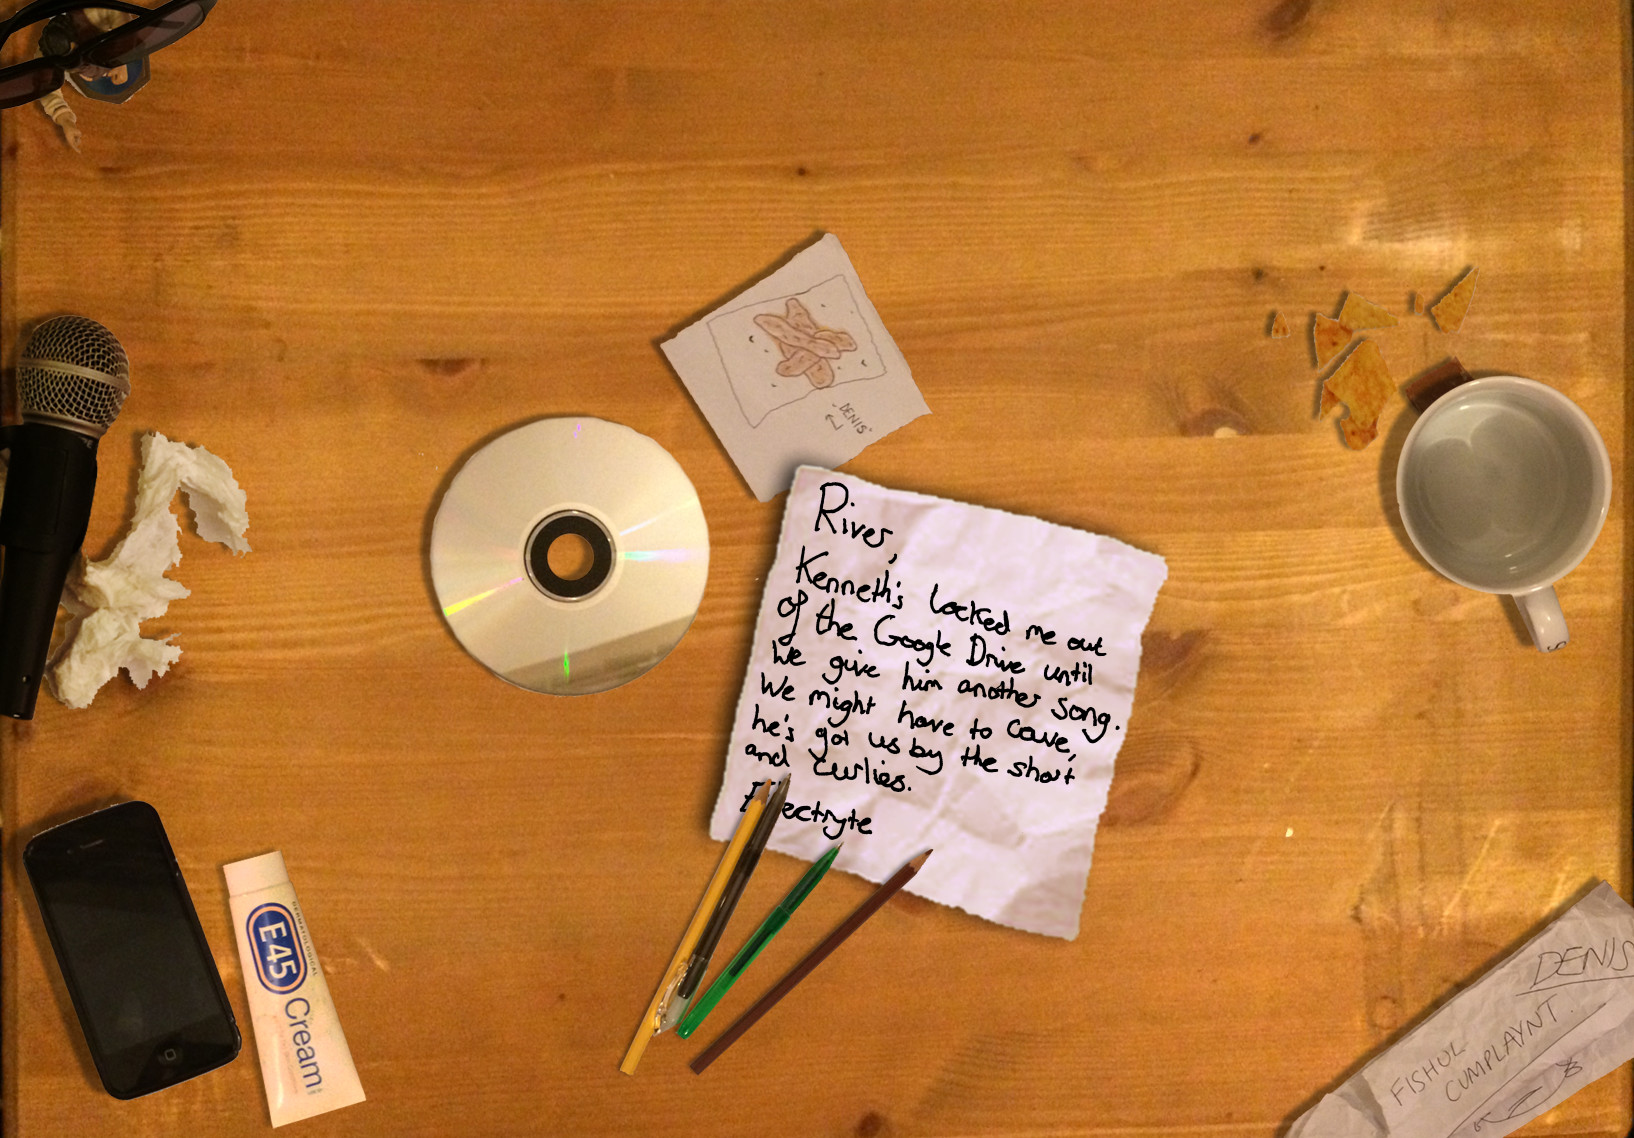 DENIS
River,
Kenneth's locked me out
of the Google Drive until
we give him another song.
We might have to cave,
he's got us by the short
and curlies.
Electryte
DERMATOLOGICAL
E45
Cream
DENIS
FISHUL
CUMPLAYNT.